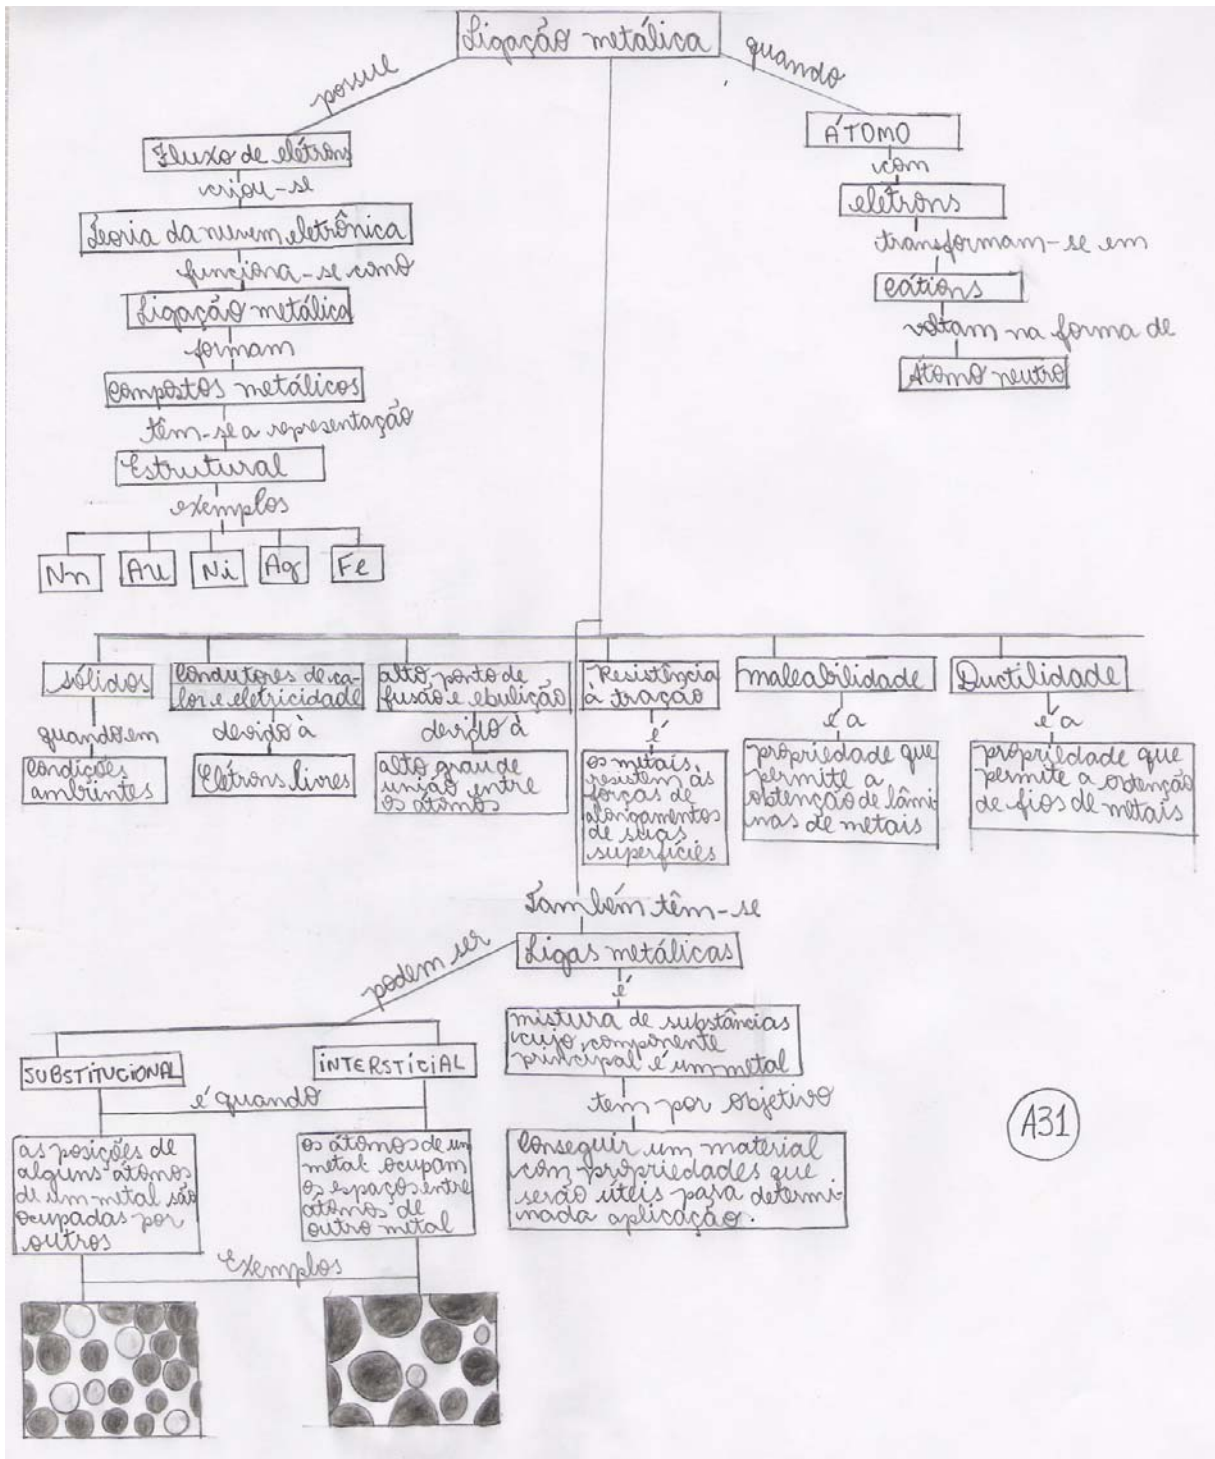 Ligação metálica
possui
quando
Fluxo de elétrons
criou-se
Teoria da nuvem eletrônica
funciona-se como
Ligação metálica
formam
Compostos metálicos
têm-se a representação
Estrutural
exemplos
Nn
Au
Ni
Ag
Fe
ÁTOMO
com
elétrons
transformam-se em
cátions
voltam na forma de
Átomo neutro
sólidos
quando em
Condições
ambientes
Condutores de ca-
lor e eletricidade
devido à
Elétrons livres
alto ponto de
fusão e ebulição
devido à
alto grau de
união entre
os átomos
Resistência
à tração
é
os metais
resistem às
forças de
alongamentos
de suas
superfícies
maleabilidade
é a
propriedade que
permite a
obtenção de lâmi-
nas de metais
Ductilidade
é a
propriedade que
permite a obtenção
de fios de metais
Também têm-se
Ligas metálicas
é
mistura de substâncias
cujo componente
principal é um metal
tem por objetivo
Conseguir um material
com propriedades que
serão úteis para determi-
nada aplicação.
podem ser
SUBSTITUCIONAL
INTERSTICIAL
é quando
as posições de
alguns átomos
de um metal são
ocupadas por
outros
os átomos de um
metal ocupam
os espaços entre
átomos de
outro metal
Exemplos
A31